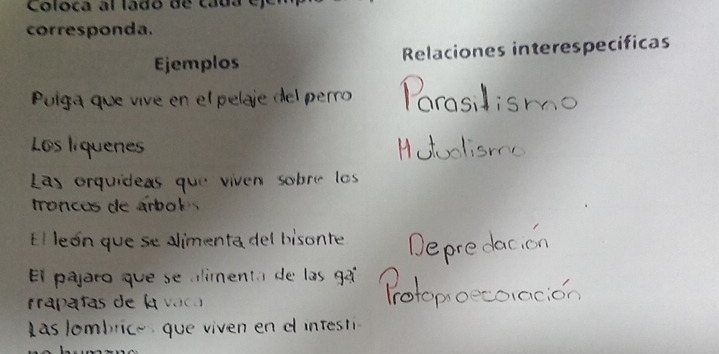 Coloca al lado de cada
corresponda.
Ejemplos
Relaciones interespecificas
Pulga que vive en el pelaje del perro
Parasitismo
Los liquenes
Mutualismo
Las orquídeas que viven sobre los
troncos de árboles
El león que se alimenta del bisonte
Depredación
El pájaro que se alimenta de las ga
rrapatas de la vaca
Protopioecoración
Las lombrices que viven en el intesti-
no humano